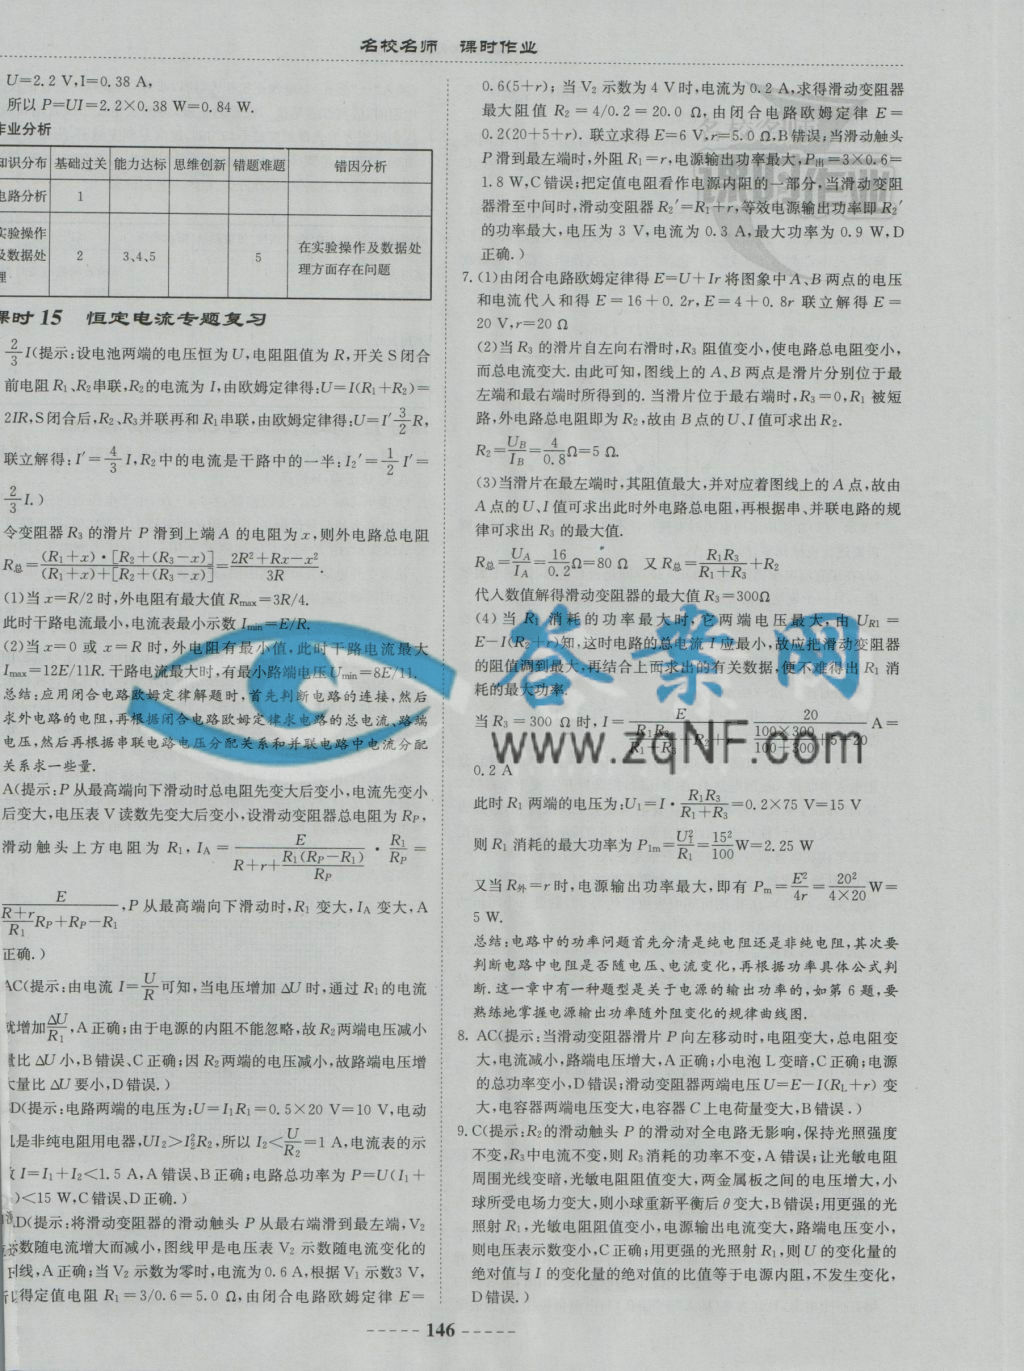 名校名师 课时作业
U=2.2 V,I=0.38 A,
所以 P=UI=2.2×0.38 W=0.84 W.
作业分析
知识分布 基础过关 能力达标 思维创新 错题难题 错因分析
电路分析 1
实验操作及数据处理 2 3、4、5 5 在实验操作及数据处理方面存在问题
课时 15 恒定电流专题复习
2/3 I(提示:设电池两端的电压恒为 U,电阻阻值为 R,开关 S 闭合
前电阻 R₁、R₂串联,R₂的电流为 I,由欧姆定律得:U=I(R₁+R₂)=
2IR,S闭合后,R₂、R₃并联再和 R₁串联,由欧姆定律得:U=I′ 3/2 R,
联立解得:I′=4/3 I,R₂中的电流是干路中的一半:I₂′=1/2 I′=
2/3 I.)
令变阻器 R₃ 的滑片 P 滑到上端 A 的电阻为 x,则外电路总电阻
R总=(R₁+x)·[R₂+(R₃−x)]/(R₁+x)+[R₂+(R₃−x)]=2R²+Rx−x²/3R.
(1)当 x=R/2 时,外电阻有最大值 Rmax=3R/4.
此时干路电流最小,电流表最小示数 Imin=E/R.
(2)当 x=0 或 x=R 时,外电阻有最小值,此时干路电流最大
Imax=12E/11R.干路电流最大时,有最小路端电压 Umin=8E/11.
总结:应用闭合电路欧姆定律解题时,首先判断电路的连接,然后
求外电路的电阻,再根据闭合电路欧姆定律求电路的总电流、路端
电压,然后再根据串联电路电压分配关系和并联电路中电流分配
关系求一些量.
A(提示:P 从最高端向下滑动时总电阻先变大后变小,电流先变小
后变大,电压表 V 读数先变大后变小,设滑动变阻器总电阻为 RP,
滑动触头上方电阻为 R₁,IA=E/(R+r+R₁(RP−R₁)/RP)·R₁/RP=
E/((R+r)/R₁ RP+RP−R₁),P 从最高端向下滑动时,R₁ 变大,IA 变大,A
正确.)
AC(提示:由电流 I=U/R可知,当电压增加 ΔU 时,通过 R₁的电流
就增加ΔU/R₁,A正确;由于电源的内阻不能忽略,故 R₂两端电压减小
量比 ΔU 小,B错误、C正确;因 R₂两端的电压减小,故路端电压增
大量比 ΔU 要小,D错误.)
BD(提示:电路两端的电压为:U=I₁R₁=0.5×20 V=10 V,电动
机是非纯电阻用电器,UI₂>I₂²R₂,所以 I₂<U/R₂=1 A,电流表的示
数 I=I₁+I₂<1.5 A,A错误、B正确;电路总功率为 P=U(I₁+
)<15 W,C错误、D正确.)
AD(提示:将滑动变阻器的滑动触头 P 从最右端滑到最左端,V₂
示数随电流增大而减小,图线甲是电压表 V₂ 示数随电流变化的
图线,A正确;当 V₂ 示数为零时,电流为 0.6 A,根据 V₁ 示数3 V,
所以得定值电阻 R₁=3/0.6=5.0 Ω,由闭合电路欧姆定律 E=
0.6(5+r);当 V₂ 示数为 4 V时,电流为 0.2 A,求得滑动变阻器
最大阻值 R₂=4/0.2=20.0 Ω,由闭合电路欧姆定律 E=
0.2(20+5+r).联立求得 E=6 V,r=5.0 Ω,B错误;当滑动触头
P 滑到最左端时,外阻 R₁=r,电源输出功率最大,P出=3×0.6=
1.8 W,C错误;把定值电阻看作电源内阻的一部分,当滑动变阻
器滑至中间时,滑动变阻器 R₂′=R₁+r,等效电源输出功率即 R₂′
的功率最大,电压为 3 V,电流为 0.3 A,最大功率为 0.9 W,D
正确.)
7. (1)由闭合电路欧姆定律得 E=U+Ir 将图象中 A、B 两点的电压
和电流代入和得 E=16+0.2r,E=4+0.8r 联立解得 E=
20 V,r=20 Ω
(2)当 R₃ 的滑片自左向右滑时,R₃ 阻值变小,使电路总电阻变小,
而总电流变大.由此可知,图线上的 A、B 两点是滑片分别位于最
左端和最右端时所得到的.当滑片位于最右端时,R₃=0,R₁ 被短
路,外电路总电阻即为 R₂,故由 B点的 U、I 值可求出R₂.
R₂=UB/IB=4/0.8 Ω=5 Ω.
(3)当滑片在最左端时,其阻值最大,并对应着图线上的 A 点,故由
A 点的U、I 值可求出此时外电路总电阻,再根据串、并联电路的规
律可求出 R₃ 的最大值.
R总=UA/IA=16/0.2 Ω=80 Ω 又 R总=R₁R₃/R₁+R₃+R₂
代入数值解得滑动变阻器的最大值 R₃=300Ω
(4)当 R₁ 消耗的功率最大时,它两端电压最大,由 UR1=
E−I(R₂+r)知,这时电路的总电流 I 应最小,故应把滑动变阻器
的阻值调到最大,再结合上而求出的有关数据,便不难得出 R₁ 消
耗的最大功率.
当 R₃=300 Ω 时,I=E/(R₁R₃/R₁+R₃+R₂+r)=20/(100×300/100+300+5+20) A=
0.2 A
此时 R₁ 两端的电压为:U₁=I·R₁R₃/R₁+R₃=0.2×75 V=15 V
则 R₁ 消耗的最大功率为 P₁m=U₁²/R₁=15²/100 W=2.25 W
又当 R外=r时,电源输出功率最大,即有 Pm=E²/4r=20²/4×20 W=
5 W.
总结:电路中的功率问题首先分清是纯电阻还是非纯电阻,其次要
判断电路中电阻是否随电压、电流变化,再根据功率具体公式判
断.这一章中有一种题型是关于电源的输出功率的,如第 6 题,要
熟练地掌握电源输出功率随外阻变化的规律曲线图.
8. AC(提示:当滑动变阻器滑片 P 向左移动时,电阻变大,总电阻变
大,电流减小,路端电压增大,A正确;小电泡 L 变暗,C正确;电源
的总功率变小,D错误;滑动变阻器两端电压 U=E−I(RL+r) 变
大,电容器两端电压变大,电容器 C 上电荷量变大,B错误.)
9. C(提示:R₂的滑动触头 P 的滑动对全电路无影响,保持光照强度
不变,R₃中电流不变,则 R₃消耗的功率不变,A错误;让光敏电阻
周围光线变暗,光敏电阻阻值变大,两金属板之间的电压增大,小
球所受电场力变大,则小球重新平衡后 θ 变大,B错误;用更强的光
照射 R₁,光敏电阻阻值变小,电源输出电流变大,路端电压变小,
则电压表示数变小,C正确;用更强的光照射 R₁,则 U 的变化量的
绝对值与 I 的变化量的绝对值的比值等于电源内阻,不发生变化,
D错误.)
答案网
www.zqNF.com
146